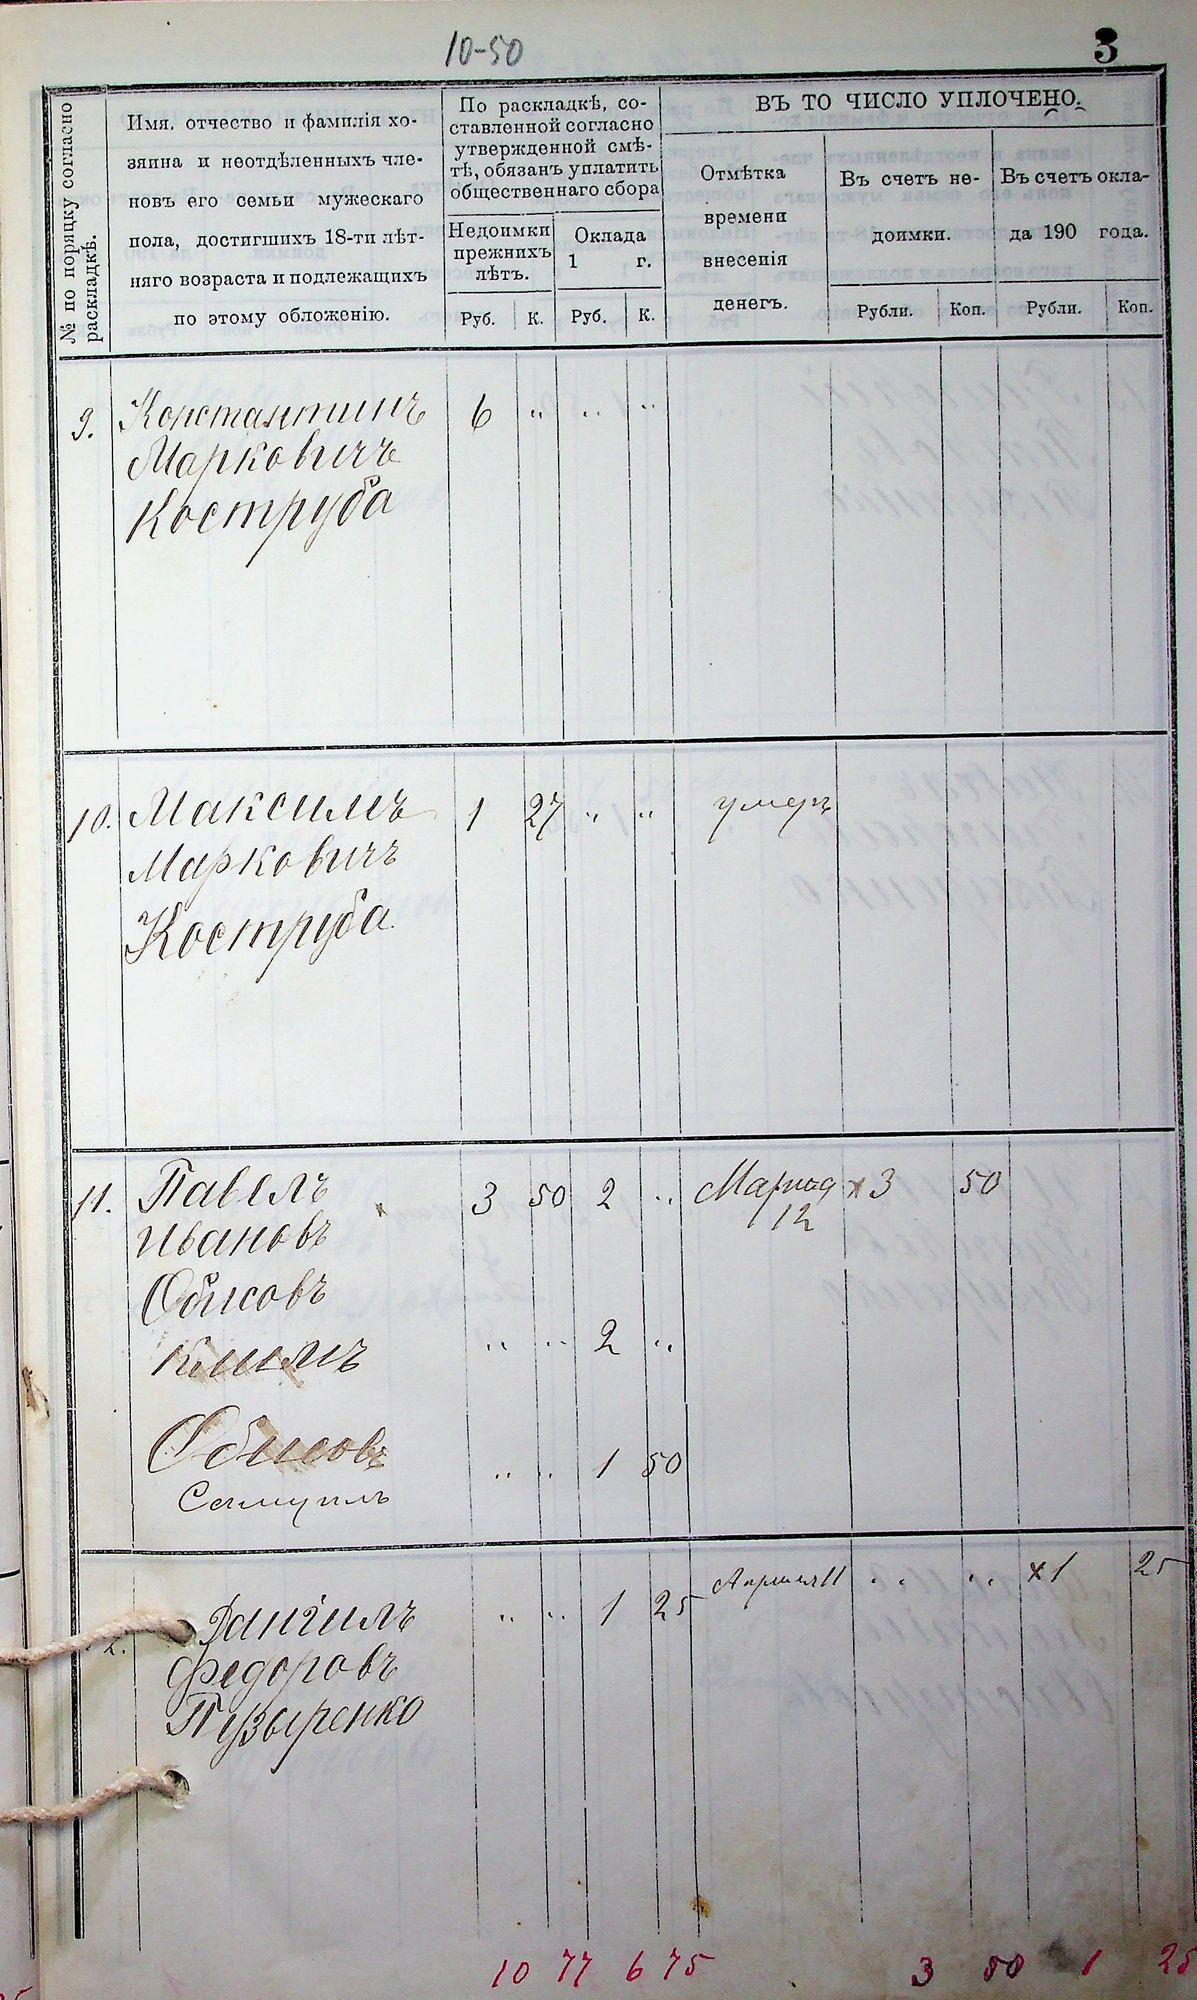 10-50
3
№ по поряцку согласно
раскладкѣ.
Имя. отчество и фамилія хо-
зяина и неотдѣленныхъ чле-
новъ его семьи мужескаго
пола, достигшихъ 18-ти лѣт-
няго возраста и подлежащихъ
по этому обложенію.
По раскладкѣ, со-
ставленной согласно
утвержденной смѣ-
тѣ, обязанъ уплатить
общественнаго сбора
Недоимки
прежнихъ
лѣтъ.
Оклада
1 г.
Руб. К. Руб. К.
ВЪ ТО ЧИСЛО УПЛОЧЕНО.
Отмѣтка
времени
внесенія
денегъ.
Въ счетъ не-
доимки.
Въ счетъ окла-
да 190 года.
Рубли. Коп. Рубли. Коп.
9. Константинъ 6 " " "
Марковичъ
Коструба
10. Максимъ 1 27 " " умеръ
Марковичъ
Коструба
11. Павелъ 3 50 2 " Марта х 3 50
Ивановъ 12
Обисовъ
Климъ " " 2 "
Обисовъ " " 1 50
Самуилъ
2. Даніилъ " " 1 25 Апреля 11 " " х 1 25
Федоровъ
Пузыренко
10 77 6 75 3 50 1 25